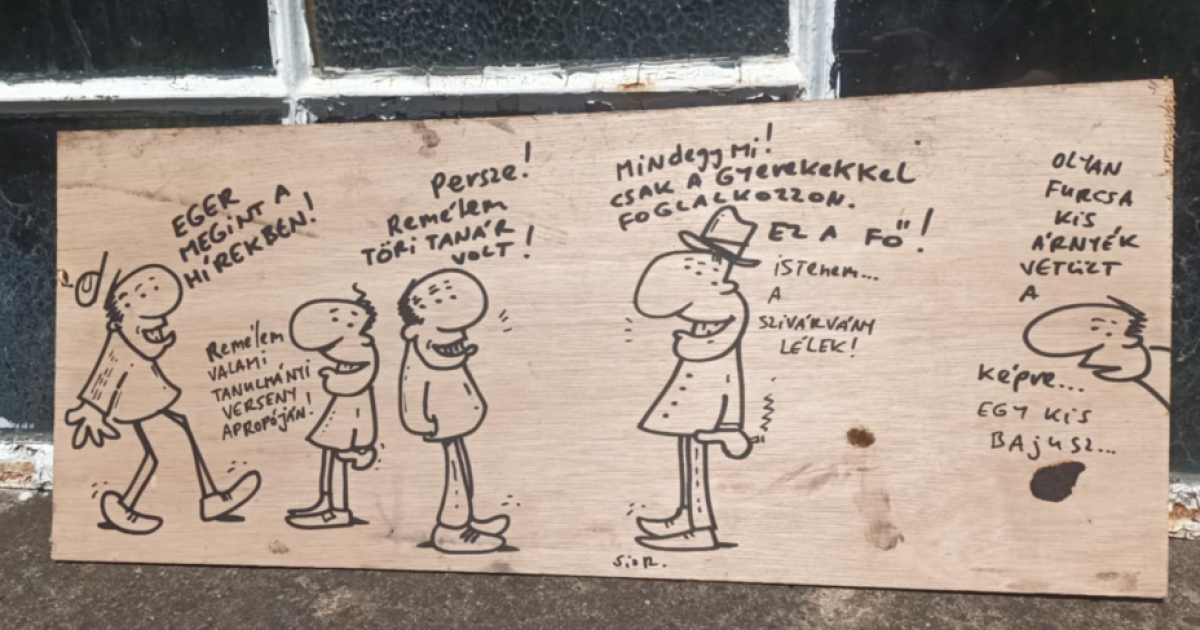 EGER
MEGINT A
HÍREKBEN!
Remélem
VALAMI
TANULMÁNYI
VERSENY
APROPÓJÁN!
Persze!
Remélem
TÖRI TANÁR
VOLT!
Mindegy mi!
CSAK A GYEREKEKKEL
FOGLALKOZZON.
EZ A FŐ!
ISTENEM...
A
SZIVÁRVÁNY
LÉLEK!
OLYAN
FURCSA
KIS
ÁRNYÉK
VETÜZT
A
Képre...
EGY KIS
BAJUSZ...